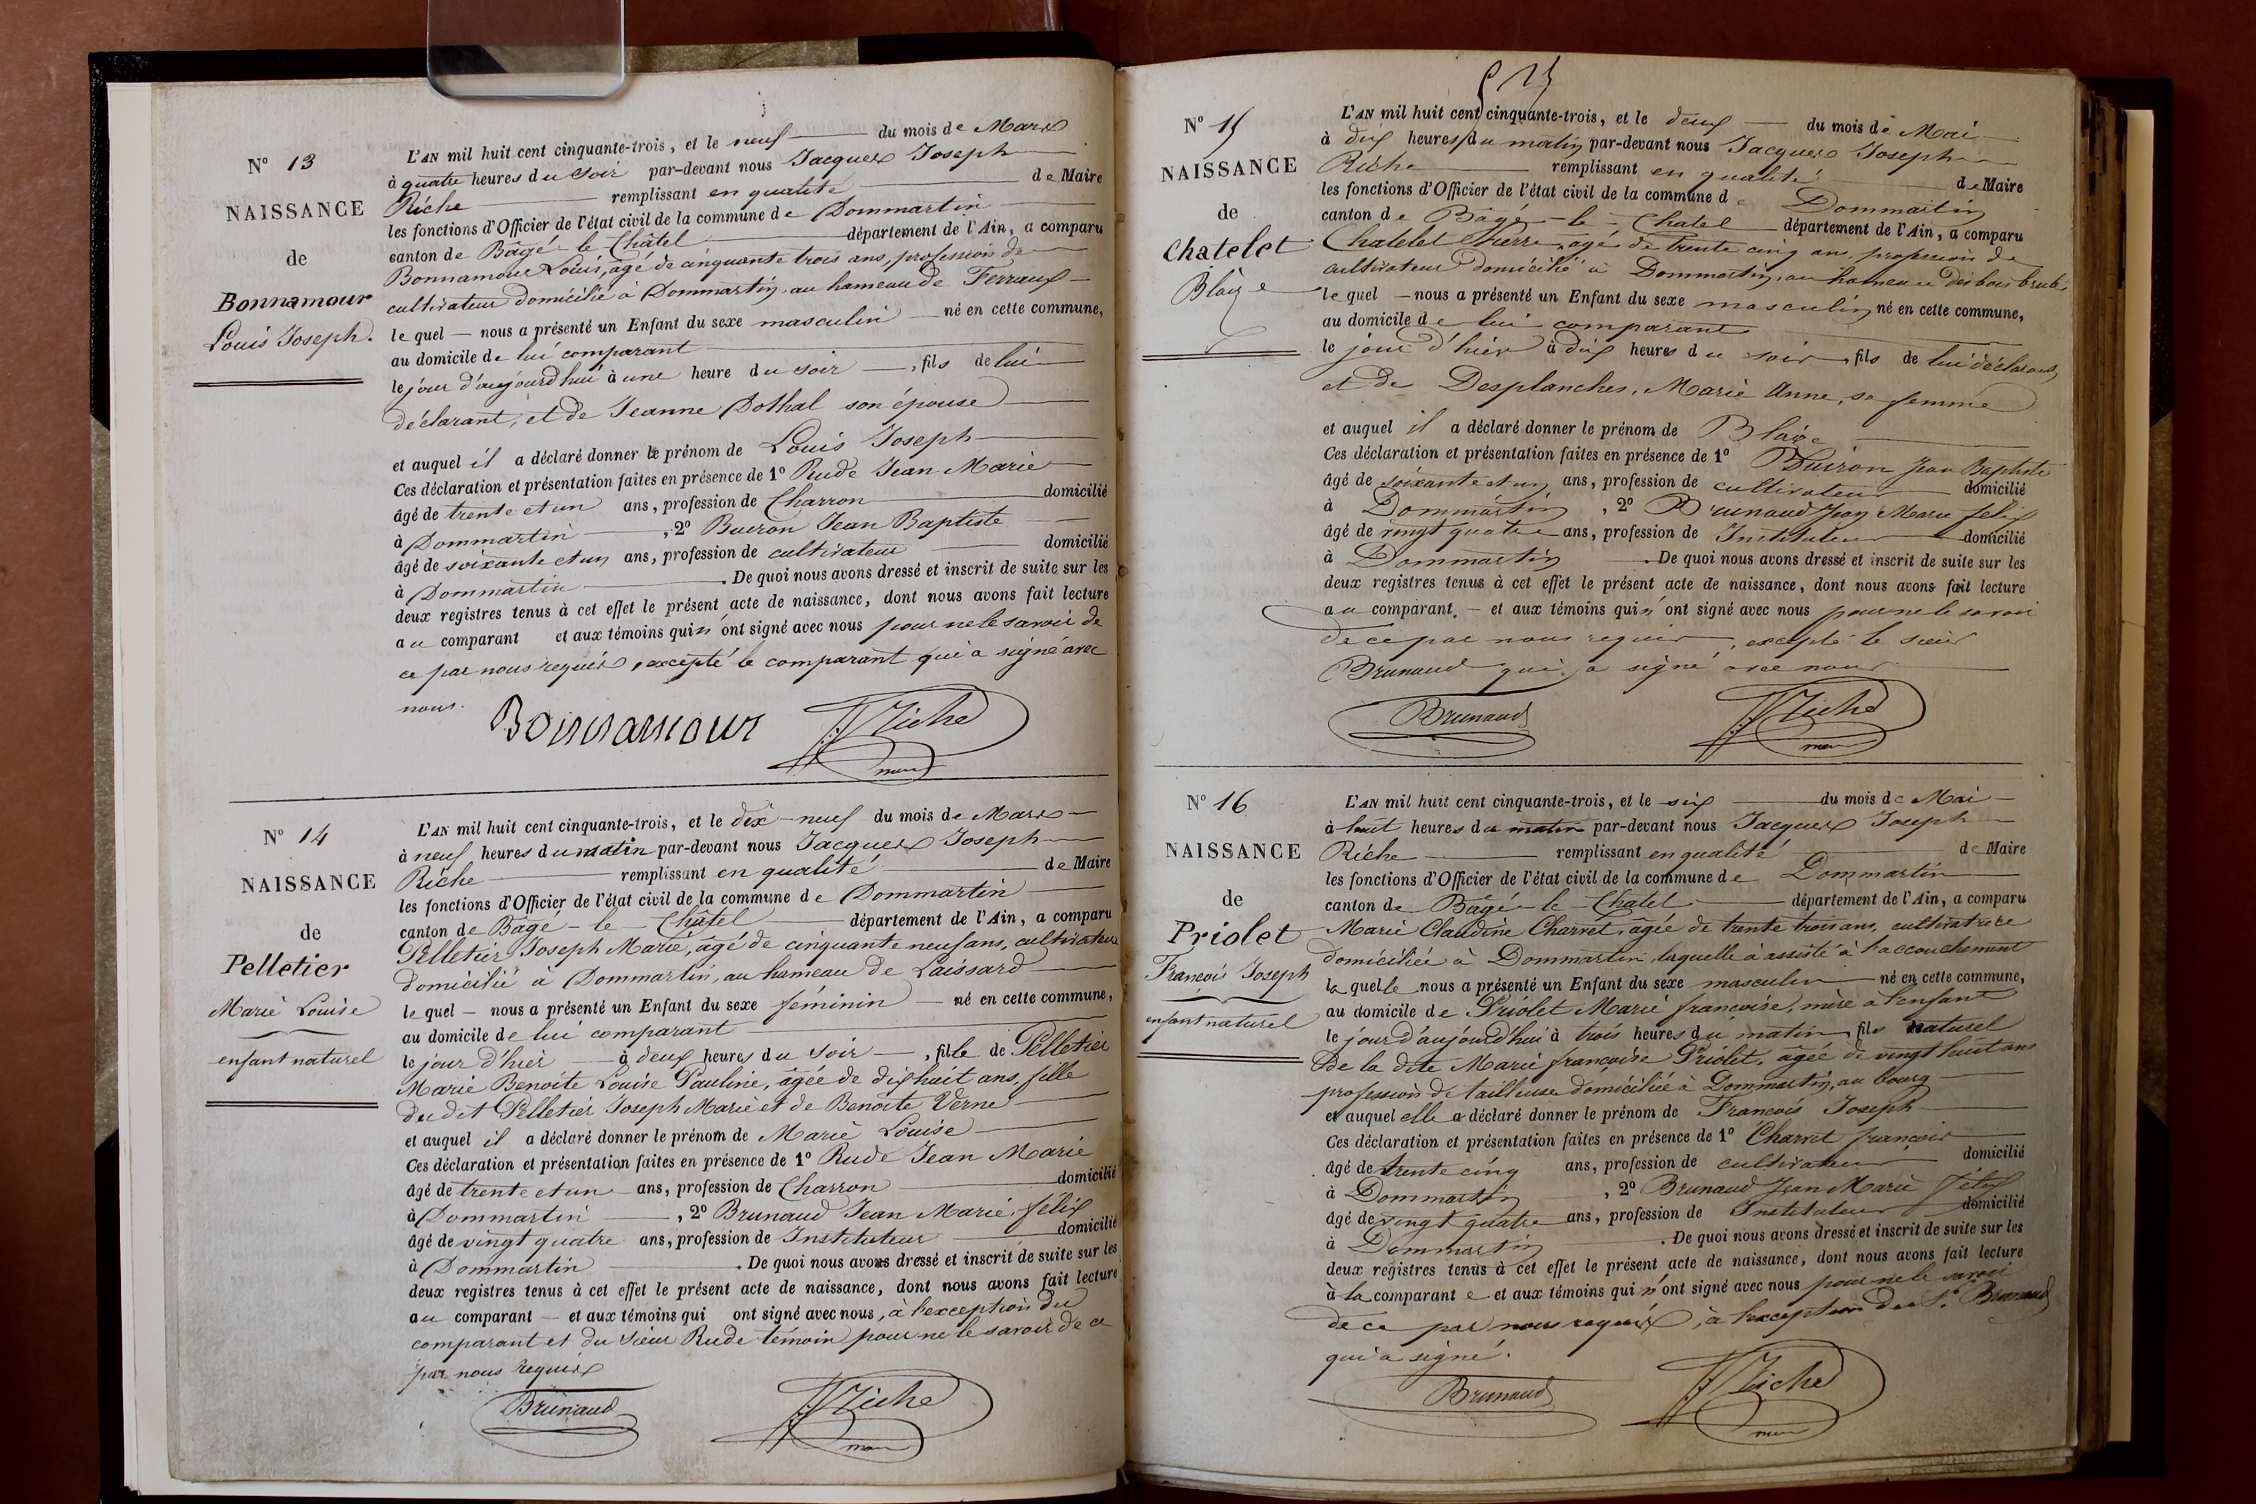 N° 13
NAISSANCE
de
Bonnamour
Louis Joseph.
L'AN mil huit cent cinquante-trois, et le neuf du mois de Mars
à quatre heures du soir par-devant nous Jacques Joseph
Riche remplissant en qualité de Maire
les fonctions d'Officier de l'état civil de la commune de Dommartin
canton de Bâgé-le-Châtel département de l'Ain, a comparu
Bonnamour Louis, âgé de cinquante trois ans, profession de
cultivateur domicilié à Dommartin, au hameau de Ferraux
le quel nous a présenté un Enfant du sexe masculin né en cette commune,
au domicile de lui comparant
le jour d'aujourd'hui à une heure du soir, fils de lui
déclarant, et de Jeanne Dothal son épouse
et auquel il a déclaré donner le prénom de Louis Joseph
Ces déclaration et présentation faites en présence de 1° Rude Jean Marie
âgé de trente et un ans, profession de Charron domicilié
à Dommartin, 2° Buiron Jean Baptiste
âgé de soixante et un ans, profession de cultivateur domicilié
à Dommartin. De quoi nous avons dressé et inscrit de suite sur les
deux registres tenus à cet effet le présent acte de naissance, dont nous avons fait lecture
au comparant et aux témoins qui n'ont signé avec nous pour ne le savoir de
ce par nous requis, excepté le comparant qui a signé avec
nous.
Bonnamour Riche
maire
N° 14
NAISSANCE
de
Pelletier
Marie Louise
enfant naturel
L'AN mil huit cent cinquante-trois, et le dix-neuf du mois de Mars
à neuf heures du matin par-devant nous Jacques Joseph
Riche remplissant en qualité de Maire
les fonctions d'Officier de l'état civil de la commune de Dommartin
canton de Bâgé-le-Châtel département de l'Ain, a comparu
Pelletier Joseph Marie, âgé de cinquante neuf ans, cultivateur
domicilié à Dommartin, au hameau de Laissard
le quel nous a présenté un Enfant du sexe féminin né en cette commune,
au domicile de lui comparant
le jour d'hier à deux heures du soir, fille de Pelletier
Marie Benoite Louise Pauline, âgée de dix huit ans, fille
du dit Pelletier Joseph Marie et de Benoite Verne
et auquel il a déclaré donner le prénom de Marie Louise
Ces déclaration et présentation faites en présence de 1° Rude Jean Marie
âgé de trente et un ans, profession de Charron domicilié
à Dommartin, 2° Brunaud Jean Marie félix
âgé de vingt quatre ans, profession de Instituteur domicilié
à Dommartin. De quoi nous avons dressé et inscrit de suite sur les
deux registres tenus à cet effet le présent acte de naissance, dont nous avons fait lecture
au comparant et aux témoins qui ont signé avec nous, à l'exception du
comparant et du sieur Rude témoin pour ne le savoir de ce
par nous requis
Brunaud Riche
maire
N° 15
NAISSANCE
de
Chatelet
Blaize
L'AN mil huit cent cinquante-trois, et le deux du mois de Mai
à dix heures du matin par-devant nous Jacques Joseph
Riche remplissant en qualité de Maire
les fonctions d'Officier de l'état civil de la commune de Dommartin
canton de Bâgé-le-Chatel département de l'Ain, a comparu
Chatelet Pierre, âgé de trente cinq ans, profession de
cultivateur domicilié à Dommartin, au hameau des bois brulés
le quel nous a présenté un Enfant du sexe masculin né en cette commune,
au domicile de lui comparant
le jour d'hier à dix heures du soir, fils de lui déclarant
et de Desplanches, Marie Anne, sa femme
et auquel il a déclaré donner le prénom de Blaize
Ces déclaration et présentation faites en présence de 1° Buiron Jean Baptiste
âgé de soixante et un ans, profession de cultivateur domicilié
à Dommartin, 2° Brunaud Jean Marie félix
âgé de vingt quatre ans, profession de Instituteur domicilié
à Dommartin. De quoi nous avons dressé et inscrit de suite sur les
deux registres tenus à cet effet le présent acte de naissance, dont nous avons fait lecture
au comparant et aux témoins qui n'ont signé avec nous pour ne le savoir
de ce par nous requis, excepté le sieur
Brunaud qui a signé avec nous
Brunaud Riche
maire
N° 16
NAISSANCE
de
Priolet
Francois Joseph
enfant naturel
L'AN mil huit cent cinquante-trois, et le six du mois de Mai
à huit heures du matin par-devant nous Jacques Joseph
Riche remplissant en qualité de Maire
les fonctions d'Officier de l'état civil de la commune de Dommartin
canton de Bâgé-le-Chatel département de l'Ain, a comparu
Marie Claudine Charvet, âgée de trente trois ans, cultivatrice
domiciliée à Dommartin, laquelle a assisté à l'accouchement
la quelle nous a présenté un Enfant du sexe masculin né en cette commune,
au domicile de Priolet Marie francoise, mère à l'enfant
le jour d'aujourd'hui à trois heures du matin, fils naturel
de la dite Marie françoise Priolet, âgée de vingt huit ans
profession de tailleuse domiciliée à Dommartin, au bourg
et auquel elle a déclaré donner le prénom de Francois Joseph
Ces déclaration et présentation faites en présence de 1° Charvet françois
âgé de trente cinq ans, profession de cultivateur domicilié
à Dommartin, 2° Brunaud Jean Marie Félix
âgé de vingt quatre ans, profession de Instituteur domicilié
à Dommartin. De quoi nous avons dressé et inscrit de suite sur les
deux registres tenus à cet effet le présent acte de naissance, dont nous avons fait lecture
à la comparante et aux témoins qui n'ont signé avec nous pour ne le savoir
de ce par nous requis, à l'exception du Sr Brunaud
qui a signé.
Brunaud Riche
maire